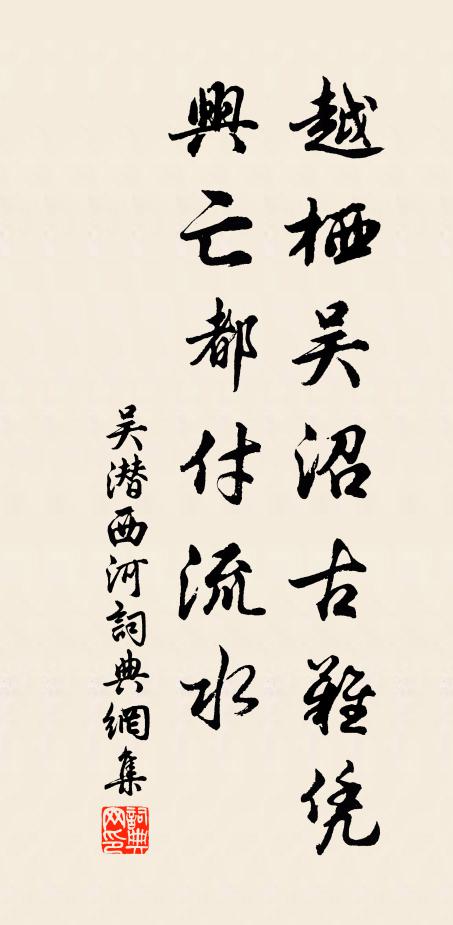 越栖吴沼古難凭
興亡都付流水
吴潜西河詞典網集
詞典网印